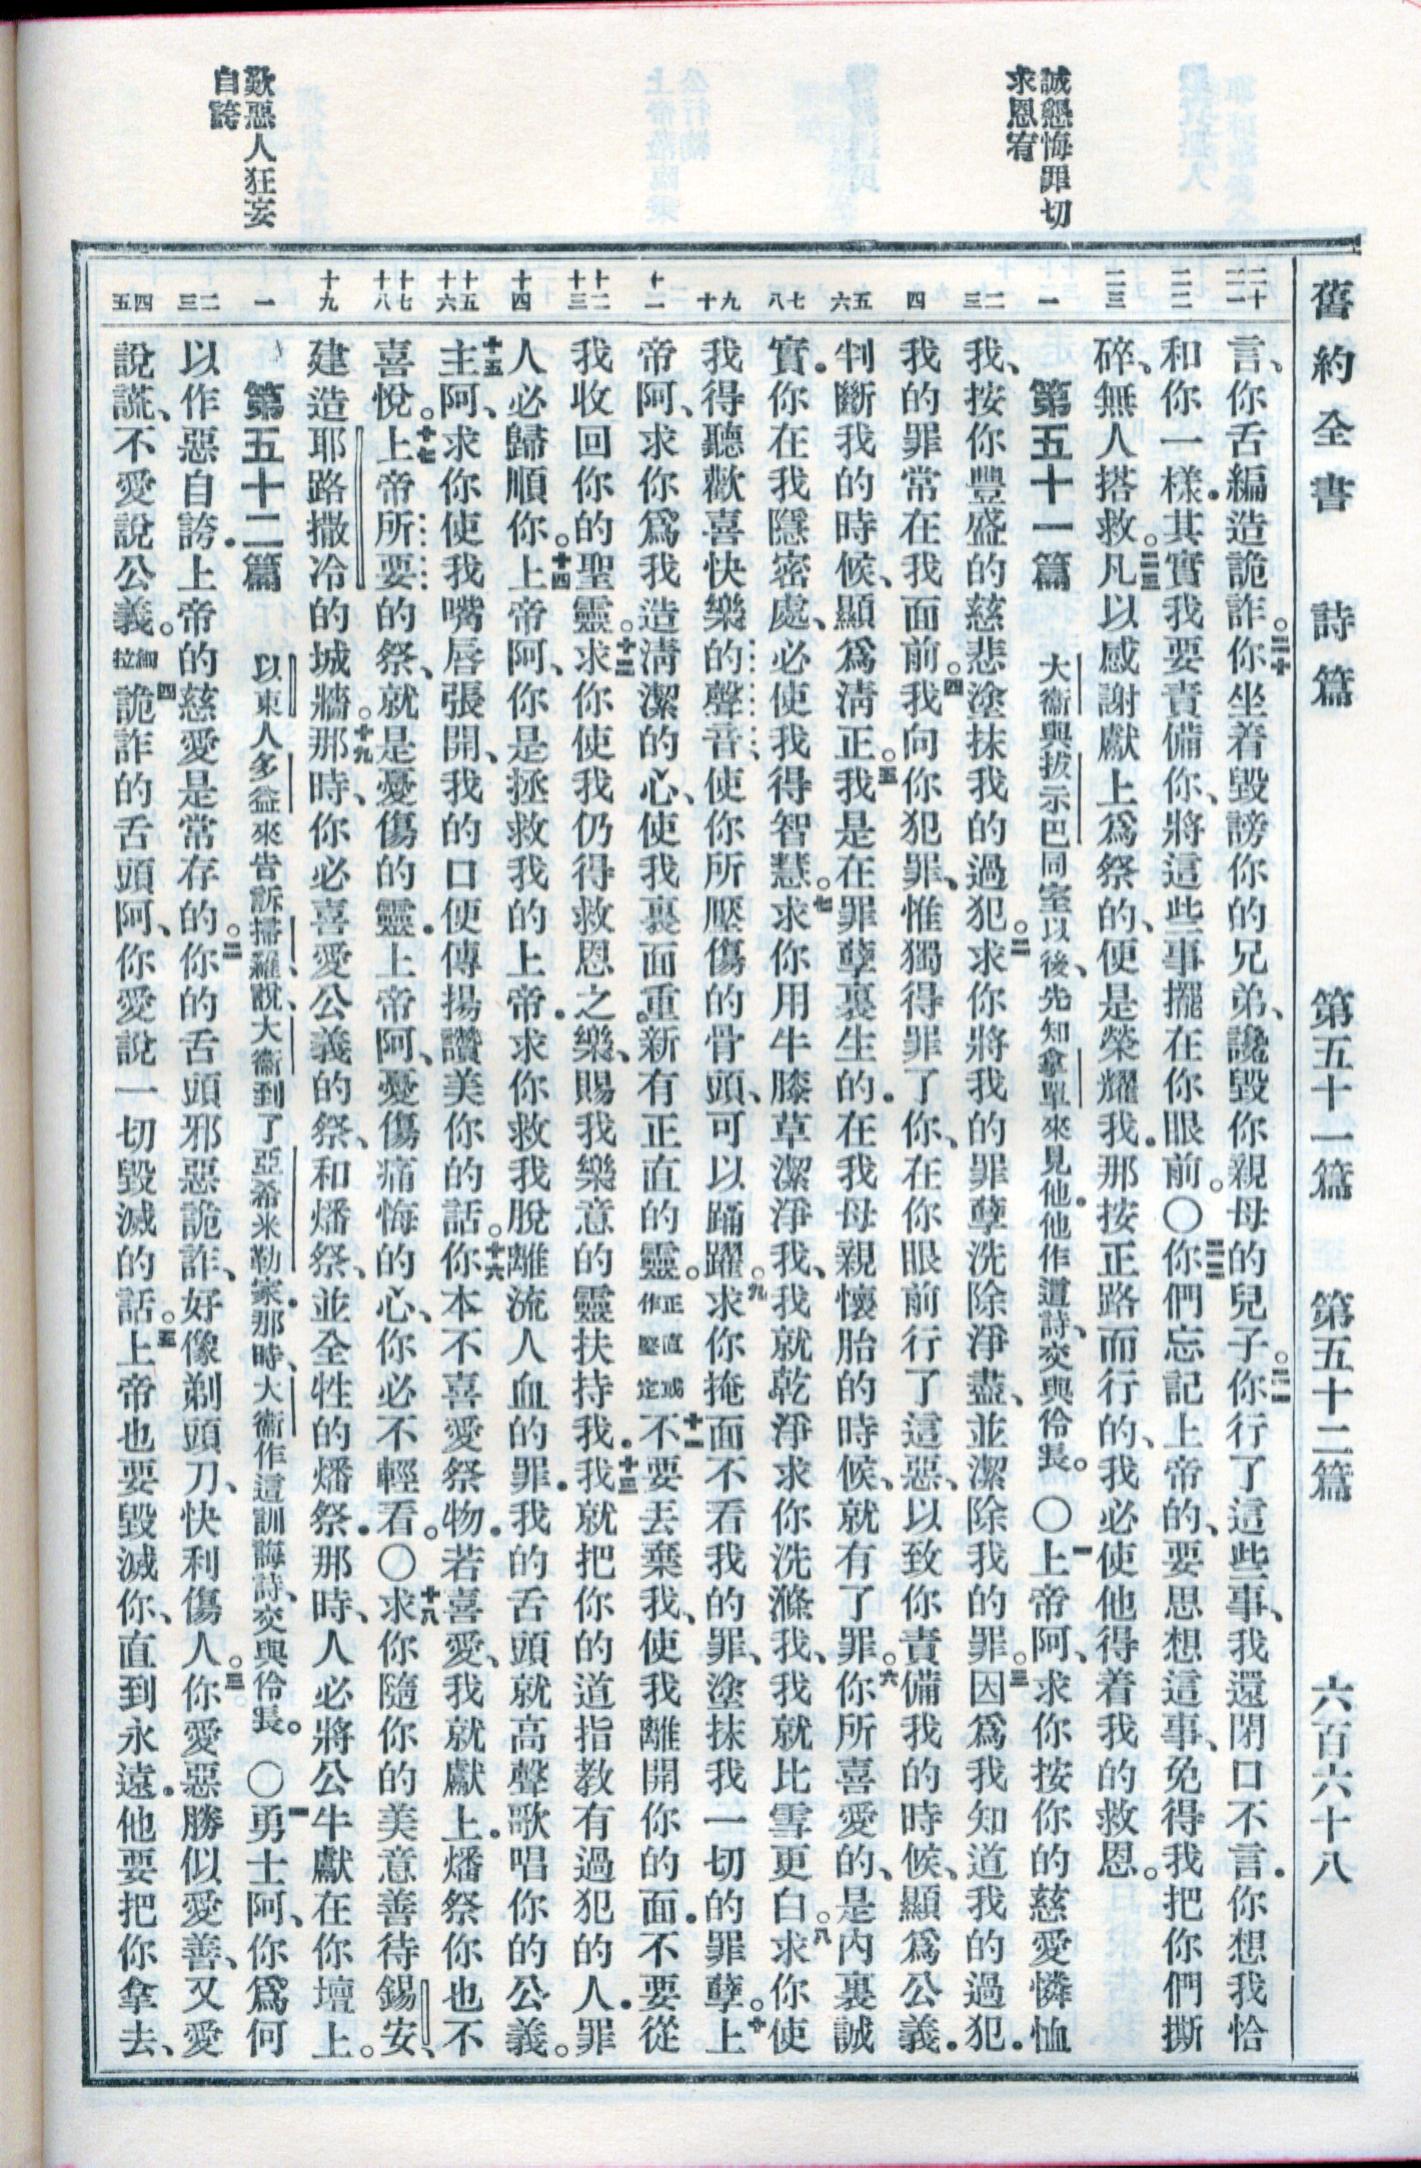 舊約全書　詩篇　第五十一篇　第五十二篇　六百六十八
誠懇悔罪切
求恩宥
歎惡人狂妄
自誇
二十　二一
言、你舌編造詭詐。二十你坐着毀謗你的兄弟、讒毀你親母的兒子。二一你行了這些事、我還閉口不言．你想我恰
二二
和你一樣．其實我要責備你、將這些事擺在你眼前。〇二二你們忘記上帝的、要思想這事、免得我把你們撕
二三
碎、無人搭救。二三凡以感謝獻上爲祭的、便是榮耀我．那按正路而行的、我必使他得着我的救恩。
一
第五十一篇　大衞與拔示巴同室以後、先知拿單來見他．他作這詩、交與伶長。〇一上帝阿、求你按你的慈愛憐恤
二　三
我、按你豐盛的慈悲塗抹我的過犯。二求你將我的罪孽洗除淨盡、並潔除我的罪。三因爲我知道我的過犯．
四
我的罪常在我面前。四我向你犯罪、惟獨得罪了你、在你眼前行了這惡、以致你責備我的時候、顯爲公義．
五　六
判斷我的時候、顯爲淸正。五我是在罪孽裏生的．在我母親懷胎的時候、就有了罪。六你所喜愛的、是內裏誠
七　八
實．你在我隱密處、必使我得智慧。七求你用牛膝草潔淨我、我就乾淨．求你洗滌我、我就比雪更白。八求你使
九　十
我得聽歡喜快樂的聲音、使你所壓傷的骨頭、可以踊躍。九求你掩面不看我的罪、塗抹我一切的罪孽。十上
十一
帝阿、求你爲我造淸潔的心、使我裏面重新有正直的靈。正直或作堅定十一不要丟棄我、使我離開你的面．不要從
十二　十三
我收回你的聖靈。十二求你使我仍得救恩之樂、賜我樂意的靈扶持我．十三我就把你的道指教有過犯的人．罪
十四
人必歸順你。十四上帝阿、你是拯救我的上帝．求你救我脫離流人血的罪．我的舌頭就高聲歌唱你的公義。
十五　十六
十五主阿、求你使我嘴唇張開、我的口便傳揚讚美你的話。十六你本不喜愛祭物．若喜愛、我就獻上．燔祭你也不
十七　十八
喜悅。十七上帝所要的祭、就是憂傷的靈．上帝阿、憂傷痛悔的心、你必不輕看。〇十八求你隨你的美意善待錫安、
十九
建造耶路撒冷的城牆。十九那時、你必喜愛公義的祭、和燔祭、並全牲的燔祭．那時、人必將公牛獻在你壇上。
一
第五十二篇　以東人多益來告訴掃羅、說、大衞到了亞希米勒家．那時、大衞作這訓誨詩、交與伶長。〇一勇士阿、你爲何
二　三
以作惡自誇．上帝的慈愛是常存的。二你的舌頭邪惡詭詐、好像剃頭刀、快利傷人。三你愛惡勝似愛善、又愛
四　五
說謊、不愛說公義。細拉四詭詐的舌頭阿、你愛說一切毀滅的話。五上帝也要毀滅你、直到永遠．他要把你拿去、